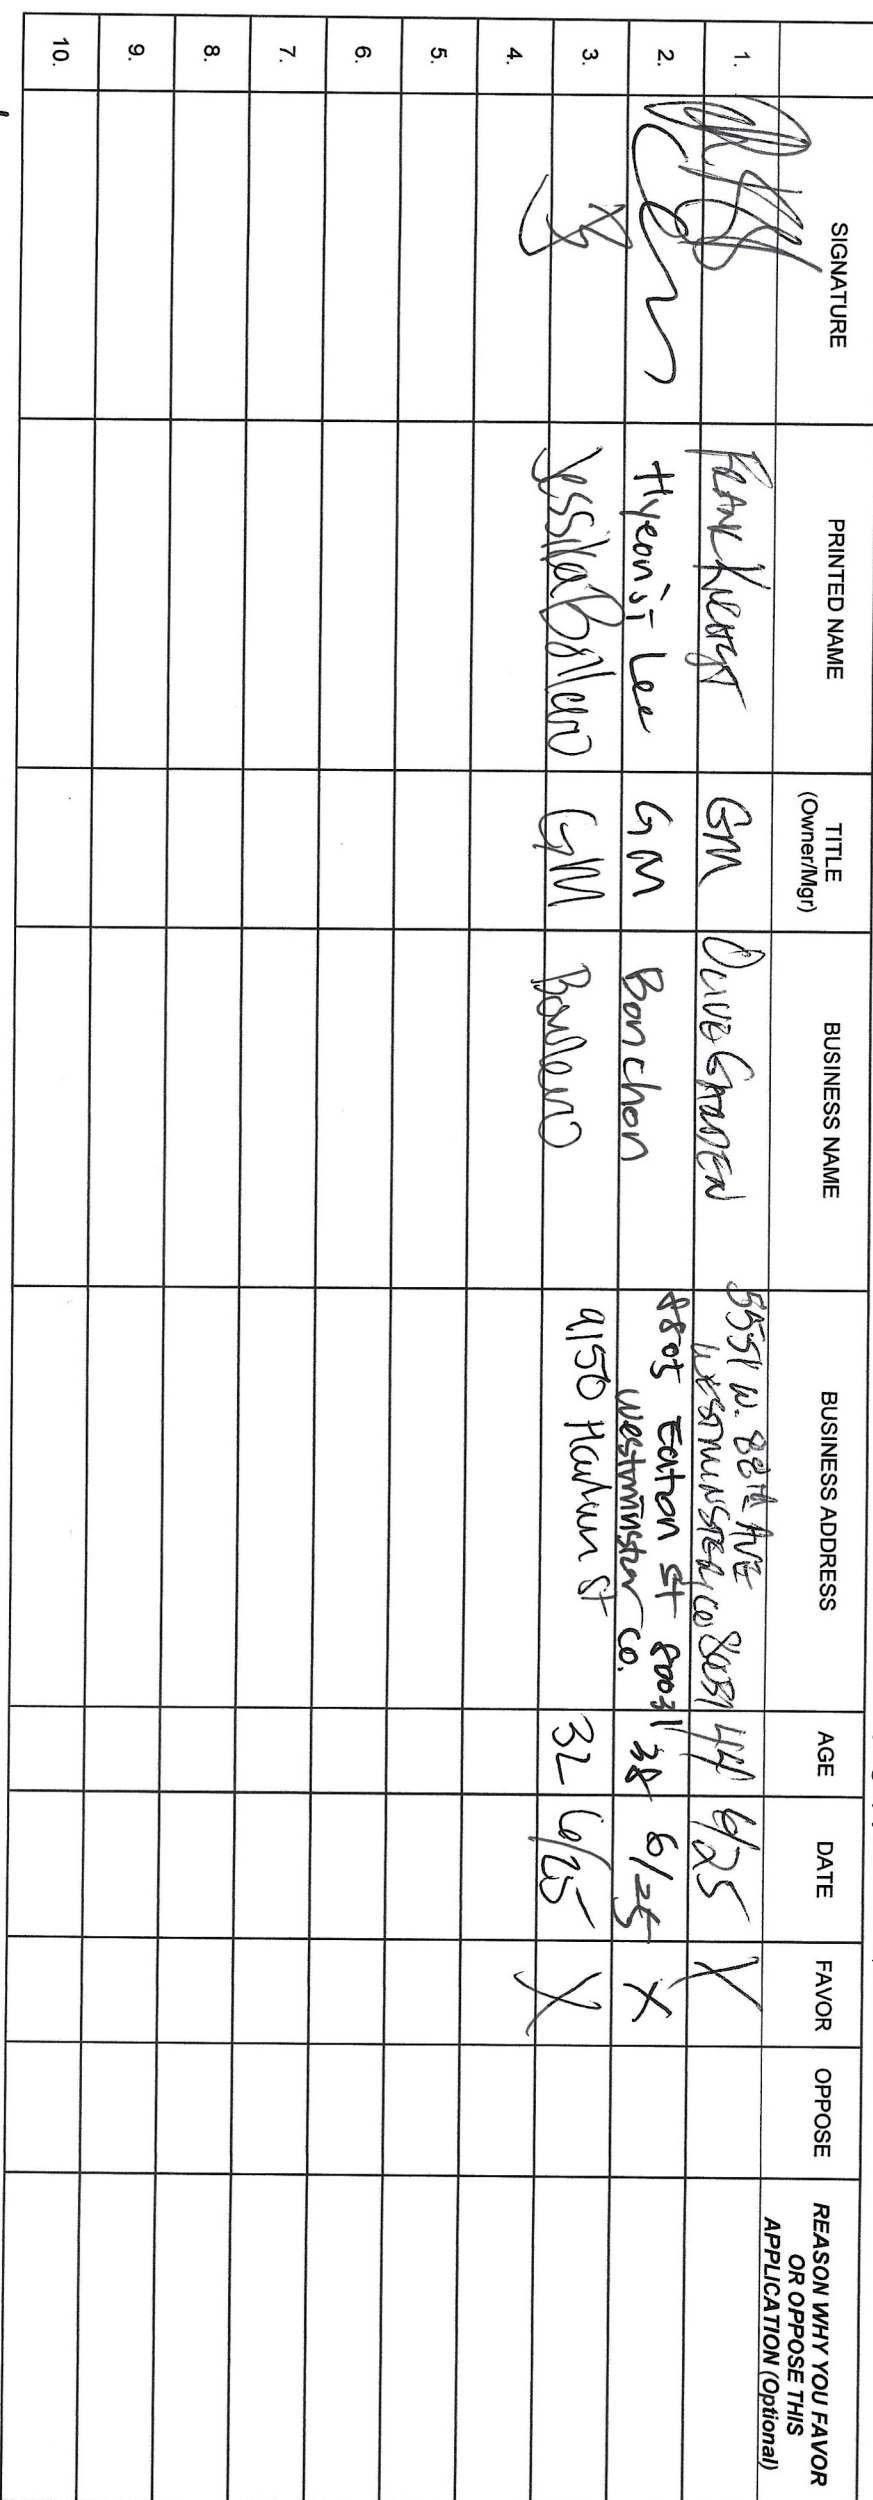 SIGNATURE PRINTED NAME TITLE (Owner/Mgr) BUSINESS NAME BUSINESS ADDRESS AGE DATE FAVOR OPPOSE REASON WHY YOU FAVOR OR OPPOSE THIS APPLICATION (Optional)
1. FRANK GM OLIVE GARDEN 5551 W. 88TH AVE WESTMINSTER, CO 80031 44 6/25 X
2. Hyeonji Lee GM Bonchon 8805 Eaton St 80031 Westminster Co. 38 6/25 X
3. GM 9150 Harlan St 32 6/25 X
4.
5.
6.
7.
8.
9.
10.